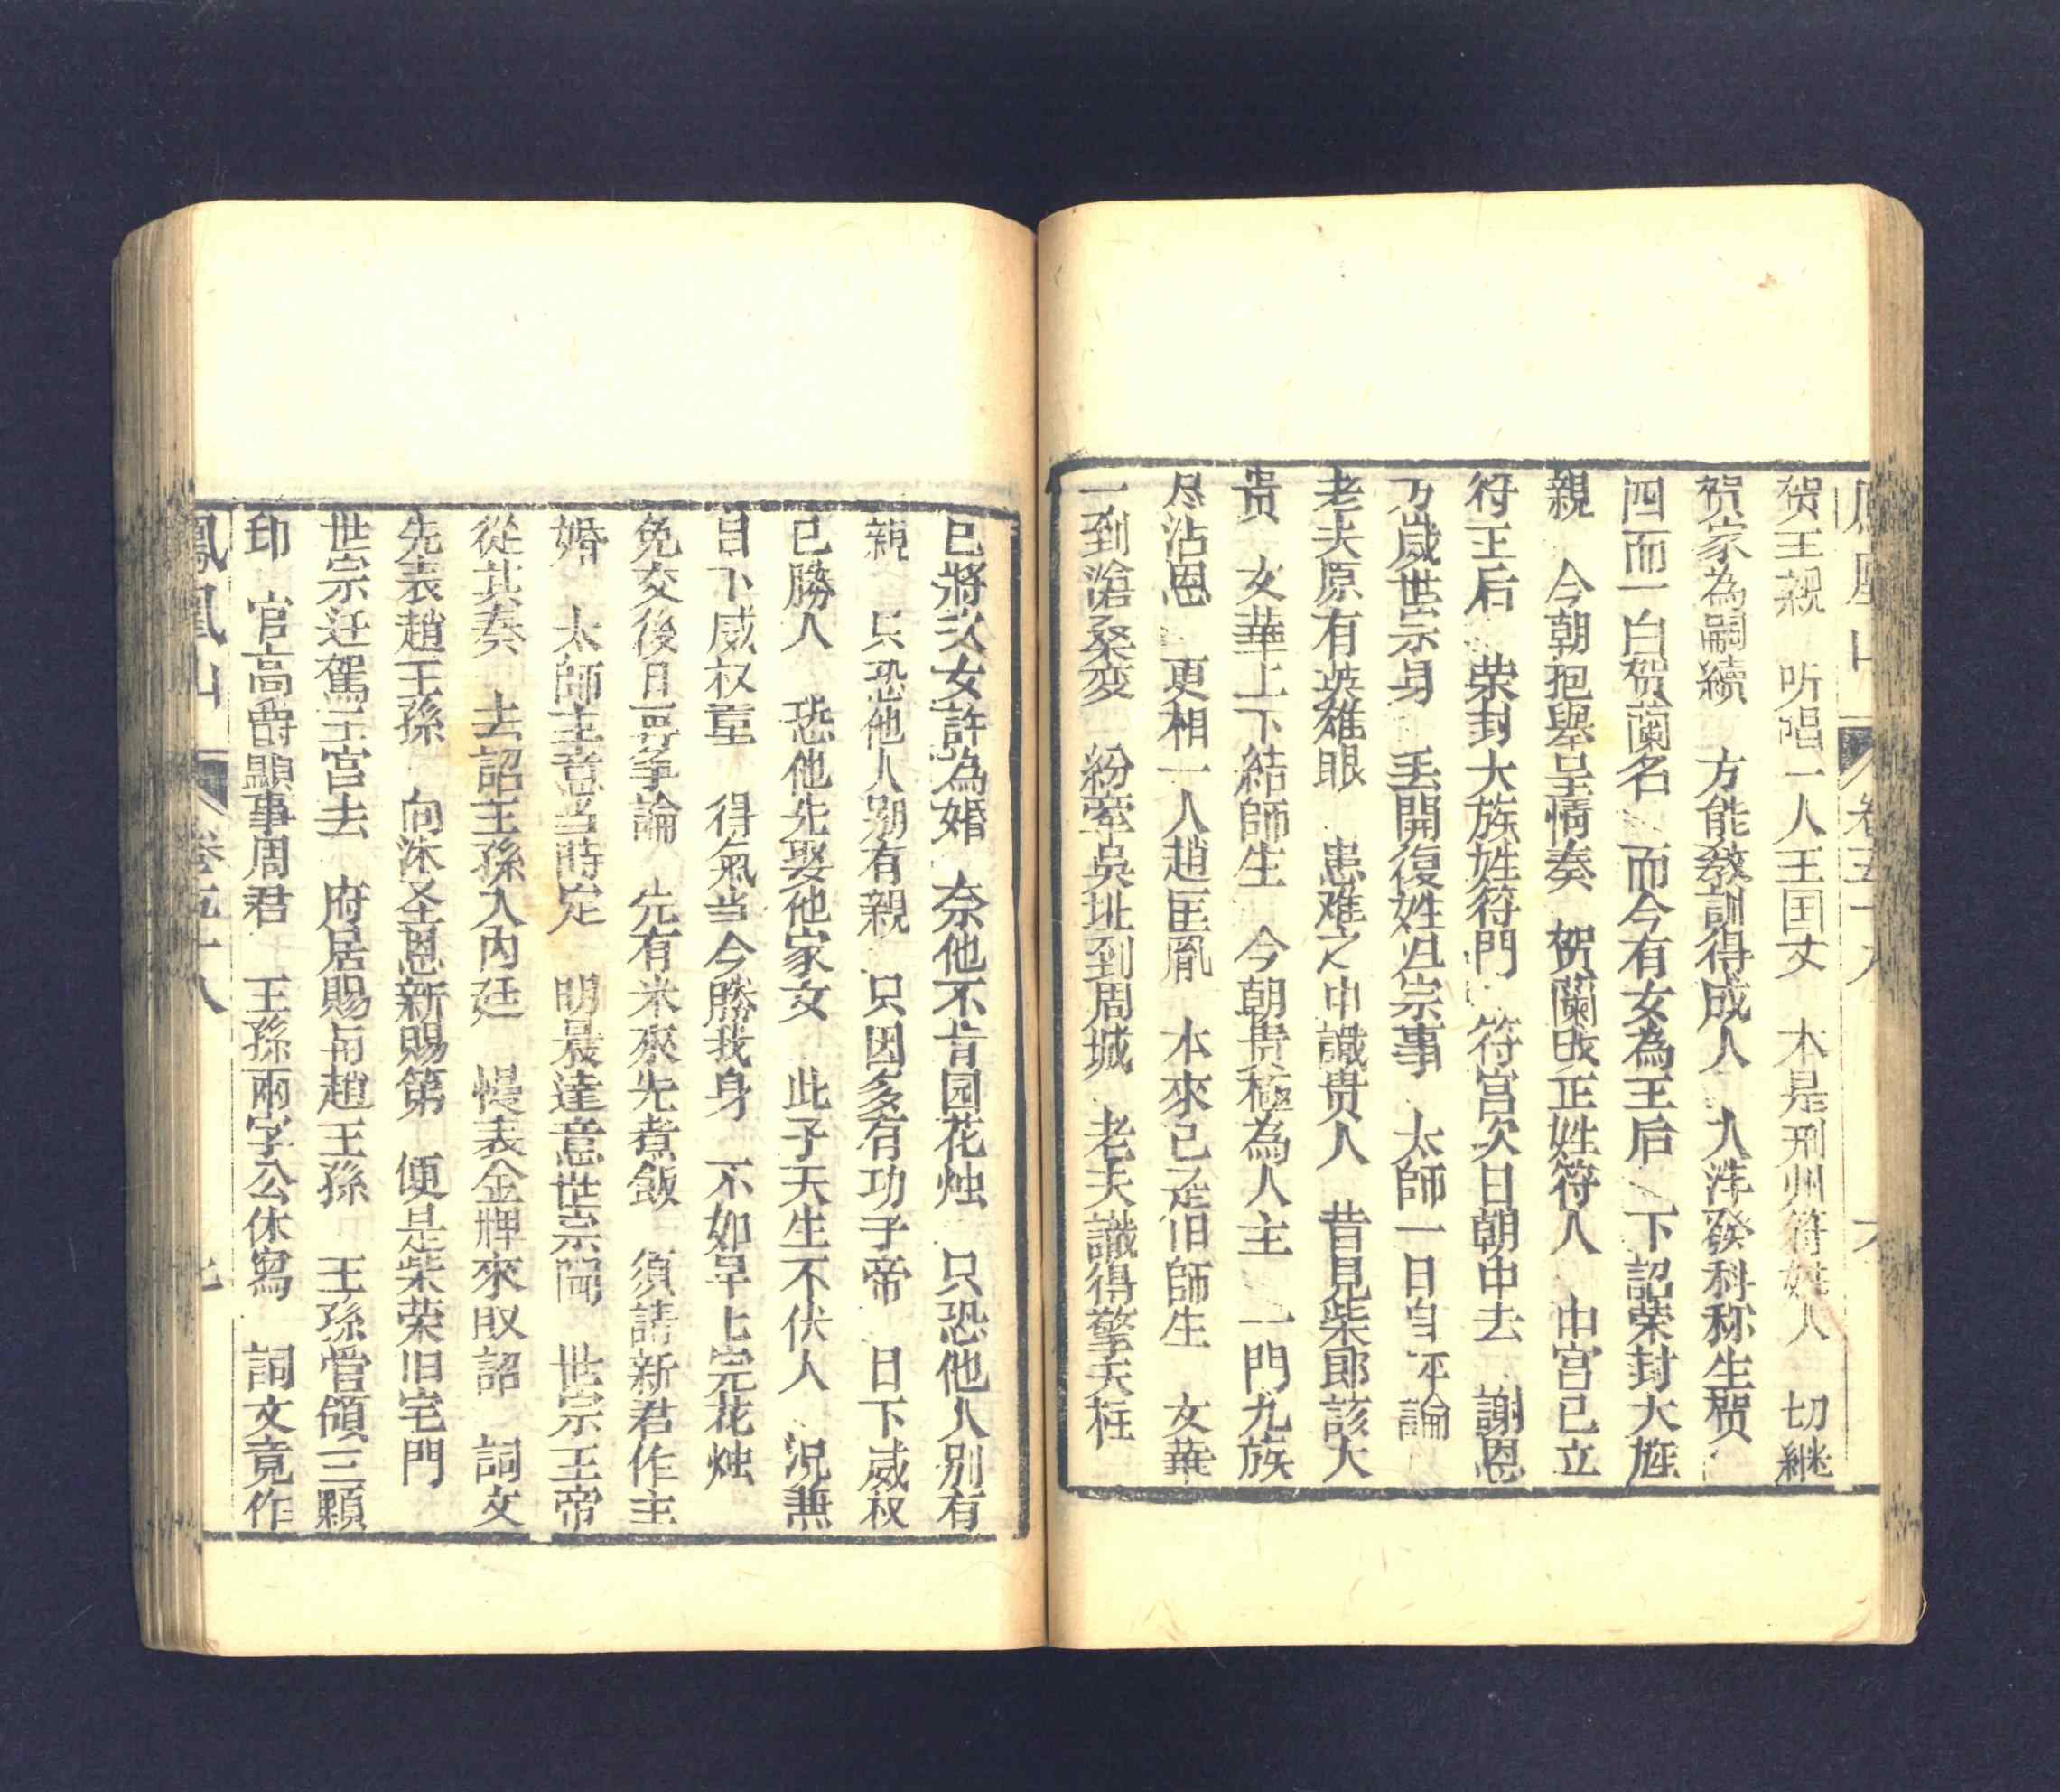 賀王親　听唱一人王国丈　本是刑州符姓人　切継
賀家為嗣續　方能教訓得成人　入泮發科称生賀
四而一白賀蘭名　而今有女為王后　下詔榮封大旌
親　今朝抱舉呈情奏　賀蘭改正姓符人　中宮已立
符王后　荣封大族姓符門　符宮次日朝中去　謝恩
万歲世宗身　丢開復姓且宗事　太師一日自平論
老夫原有英雄眼　患难之中識贵人　昔見柴郎該大
贵　女華上下結師生　今朝貴極為人主　一門九族
尽沾恩　更相一人趙匡胤　本來已是旧師生　女華
一到滄桑変　紛牽吳址到周城　老夫識得擎天柱
已將次女許為婚　奈他不肯园花烛　只恐他人别有
親　只恐他人别有親　只因多有功子帝　日下威权
已勝人　恐他先娶他家女　此子天生不伏人　況無
目下威权重　得氣当今勝我身　不如早上完花烛
免交後日再爭論　先有米來先煮飯　須請新君作主
婚　太師主意当時定　明晨達意世宗聞　世宗王帝
從其奏　去詔王孫入内廷　慢表金牌來取詔　詞文
先表趙王孫　向沐圣恩新賜第　便是柴荣旧宅門
世宗迁駕王宮去　府居賜与趙王孫　王孫曾領三顆
印　官高爵顯事周君　王孫兩字公休寫　詞文竟作
鳳凰山　卷五十八　七